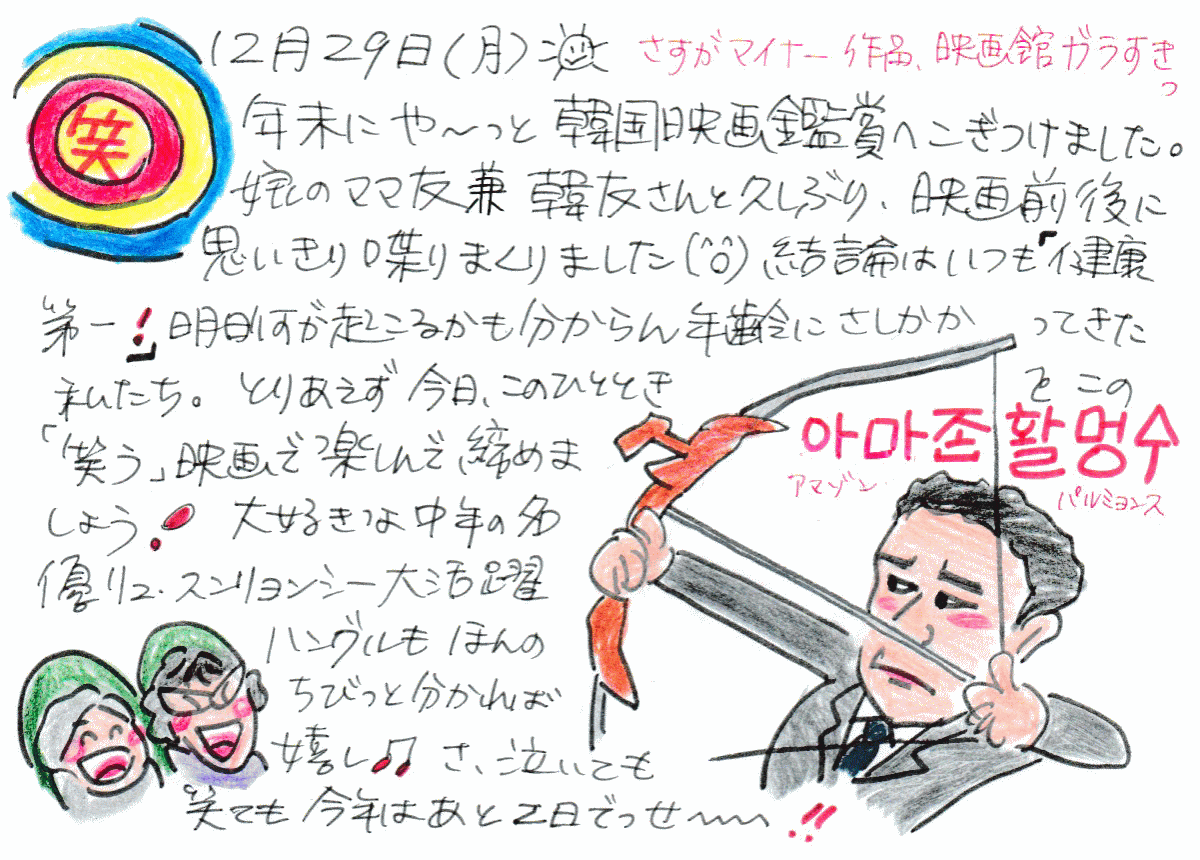 笑
12月29日(月)
さすがマイナー作品、映画館ガラすきっ
年末にや～っと韓国映画鑑賞へこぎつけました。
嫁のママ友兼韓友さんと久しぶり、映画前後に
思いきり喋りまくりました(^o^)結論はいつも「健康
第一!」明日何が起こるかも分からん年齢にさしかかってきた
私たち。とりあえず今日、このひとときをこの
「笑う」映画で楽しんで締めま
しょう!大好きな中年の名
優リュ・スンリョンシー大活躍
ハングルもほんの
ちびっと分かれば
嬉し♫さ、泣いても
笑ても今年はあと2日でっせ～〰!!
아마존 활명수
アマゾン パルミョンス